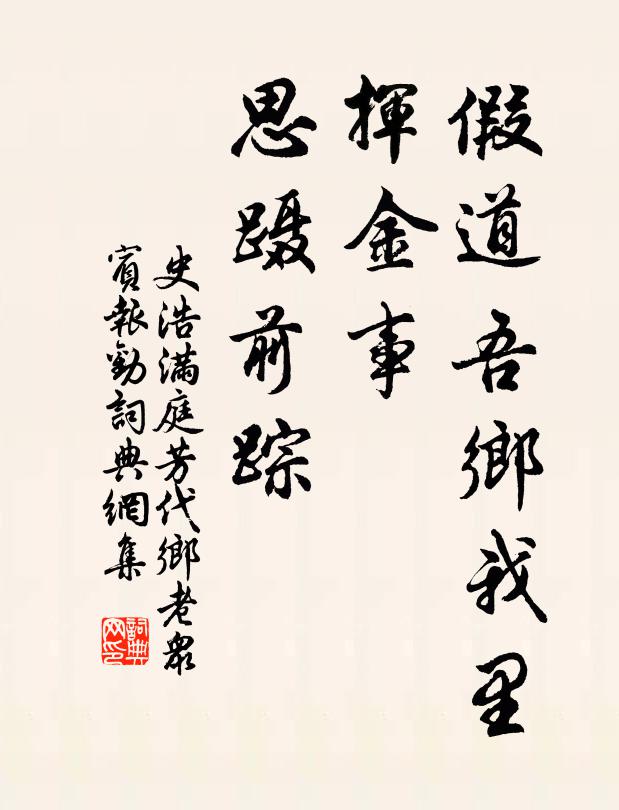 假道吾鄉我里
揮金事
思蹑前踪
史浩满庭芳代鄉老眾
賓報勸詞典網集
詞典网印